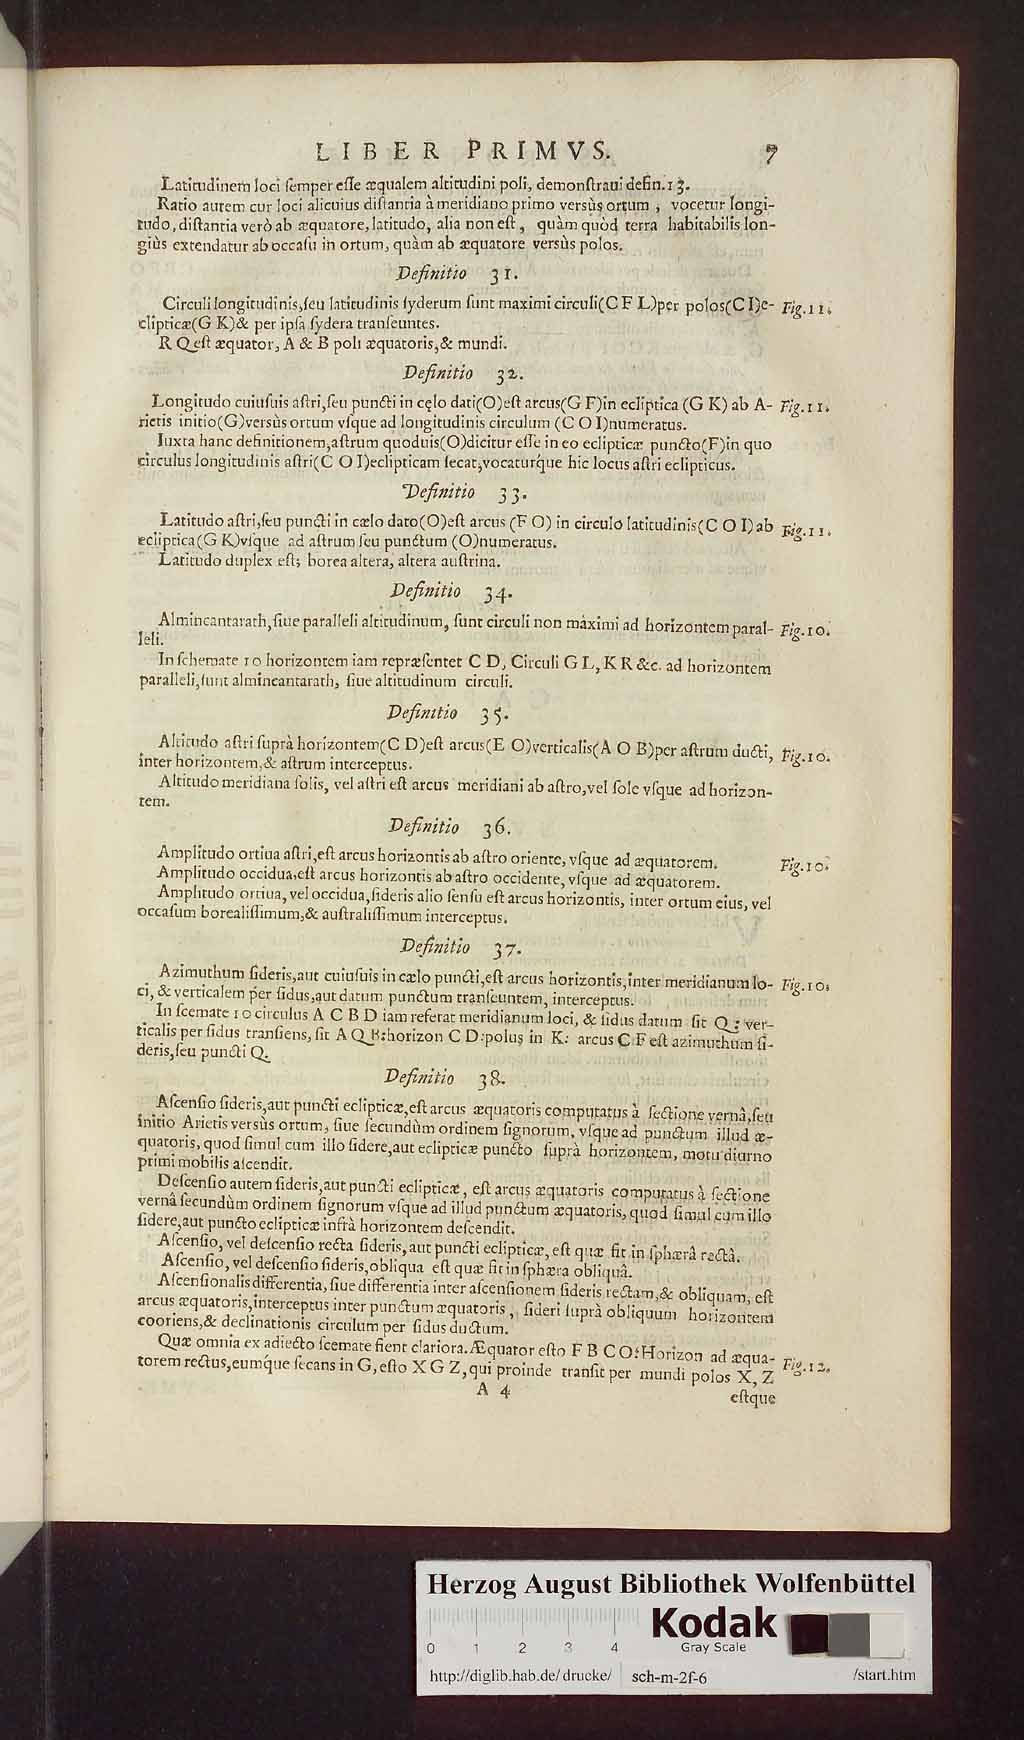 LIBER PRIMVS. 7
Latitudinem loci ſemper eſſe æqualem altitudini poli, demonſtraui defin.13.
Ratio autem cur loci alicuius diſtantia à meridiano primo versùs ortum, vocetur longi-
tudo, diſtantia verò ab æquatore, latitudo, alia non eſt, quàm quòd terra habitabilis lon-
giùs extendatur ab occaſu in ortum, quàm ab æquatore versùs polos.
Definitio 31.
Circuli longitudinis, ſeu latitudinis ſyderum ſunt maximi circuli(C F L)per polos(C I)e- Fig.11.
clipticæ(G K)& per ipſa ſydera tranſeuntes.
R Q eſt æquator, A & B poli æquatoris,& mundi.
Definitio 32.
Longitudo cuiuſuis aſtri, ſeu puncti in cęlo dati(O)eſt arcus(G F)in ecliptica (G K) ab A- Fig.11.
rietis initio(G)versùs ortum vſque ad longitudinis circulum (C O I)numeratus.
Iuxta hanc definitionem, aſtrum quoduis(O)dicitur eſſe in eo eclipticæ puncto(F)in quo
circulus longitudinis aſtri(C O I)eclipticam ſecat, vocaturq́ue hic locus aſtri eclipticus.
Definitio 33.
Latitudo aſtri, ſeu puncti in cælo dato(O)eſt arcus (F O) in circulo latitudinis(C O I)ab Fig.11.
ecliptica(G K)vſque ad aſtrum ſeu punctum (O)numeratus.
Latitudo duplex eſt; borea altera, altera auſtrina.
Definitio 34.
Almincantarath, ſiue paralleli altitudinum, ſunt circuli non máximi ad horizontem paral- Fig.10.
leli.
In ſchemate 10 horizontem iam repræſentet C D, Circuli G L, K R &c. ad horizontem
paralleli, ſunt almincantarath, ſiue altitudinum circuli.
Definitio 35.
Altitudo aſtri ſuprà horizontem(C D)eſt arcus(E O)verticalis(A O B)per aſtrum ducti, Fig.10.
inter horizontem,& aſtrum interceptus.
Altitudo meridiana ſolis, vel aſtri eſt arcus meridiani ab aſtro, vel ſole vſque ad horizon-
tem.
Definitio 36.
Amplitudo ortiua aſtri, eſt arcus horizontis ab aſtro oriente, vſque ad æquatorem. Fig.10.
Amplitudo occidua, eſt arcus horizontis ab aſtro occidente, vſque ad æquatorem.
Amplitudo ortiua, vel occidua, ſideris alio ſenſu eſt arcus horizontis, inter ortum eius, vel
occaſum borealiſſimum,& auſtraliſſimum interceptus.
Definitio 37.
Azimuthum ſideris, aut cuiuſuis in cælo puncti, eſt arcus horizontis, inter meridianum lo- Fig.10.
ci, & verticalem per ſidus, aut datum punctum tranſeuntem, interceptus.
In ſcemate 10 circulus A C B D iam referat meridianum loci, & ſidus datum ſit Q: ver-
ticalis per ſidus tranſiens, ſit A Q B: horizon C D: polus in K: arcus C F eſt azimuthum ſi-
deris, ſeu puncti Q.
Definitio 38.
Aſcenſio ſideris, aut puncti eclipticæ, eſt arcus æquatoris computatus à ſectione vernâ, ſeu
initio Arietis versùs ortum, ſiue ſecundùm ordinem ſignorum, vſque ad punctum illud æ-
quatoris, quod ſimul cum illo ſidere, aut eclipticæ puncto ſuprà horizontem, motu diurno
primi mobilis aſcendit.
Deſcenſio autem ſideris, aut puncti eclipticæ, eſt arcus æquatoris computatus à ſectione
vernâ ſecundùm ordinem ſignorum vſque ad illud punctum æquatoris, quod ſimul cum illo
ſidere, aut puncto eclipticæ infrà horizontem deſcendit.
Aſcenſio, vel deſcenſio recta ſideris, aut puncti eclipticæ, eſt quæ fit in ſphærâ rectâ.
Aſcenſio, vel deſcenſio ſideris, obliqua eſt quæ fit in ſphæra obliquâ.
Aſcenſionalis differentia, ſiue differentia inter aſcenſionem ſideris rectam,& obliquam, eſt
arcus æquatoris, interceptus inter punctum æquatoris, ſideri ſuprà obliquum horizontem
cooriens,& declinationis circulum per ſidus ductum.
Quæ omnia ex adiecto ſcemate fient clariora. Æquator eſto F B C O: Horizon ad æqua-
torem rectus, eumq́ue ſecans in G, eſto X G Z, qui proinde tranſit per mundi polos X, Z Fig.12.
A 4 eſtque
Herzog August Bibliothek Wolfenbüttel
Kodak
Gray Scale
0 1 2 3 4
http://diglib.hab.de/drucke/ sch-m-2f-6 /start.htm